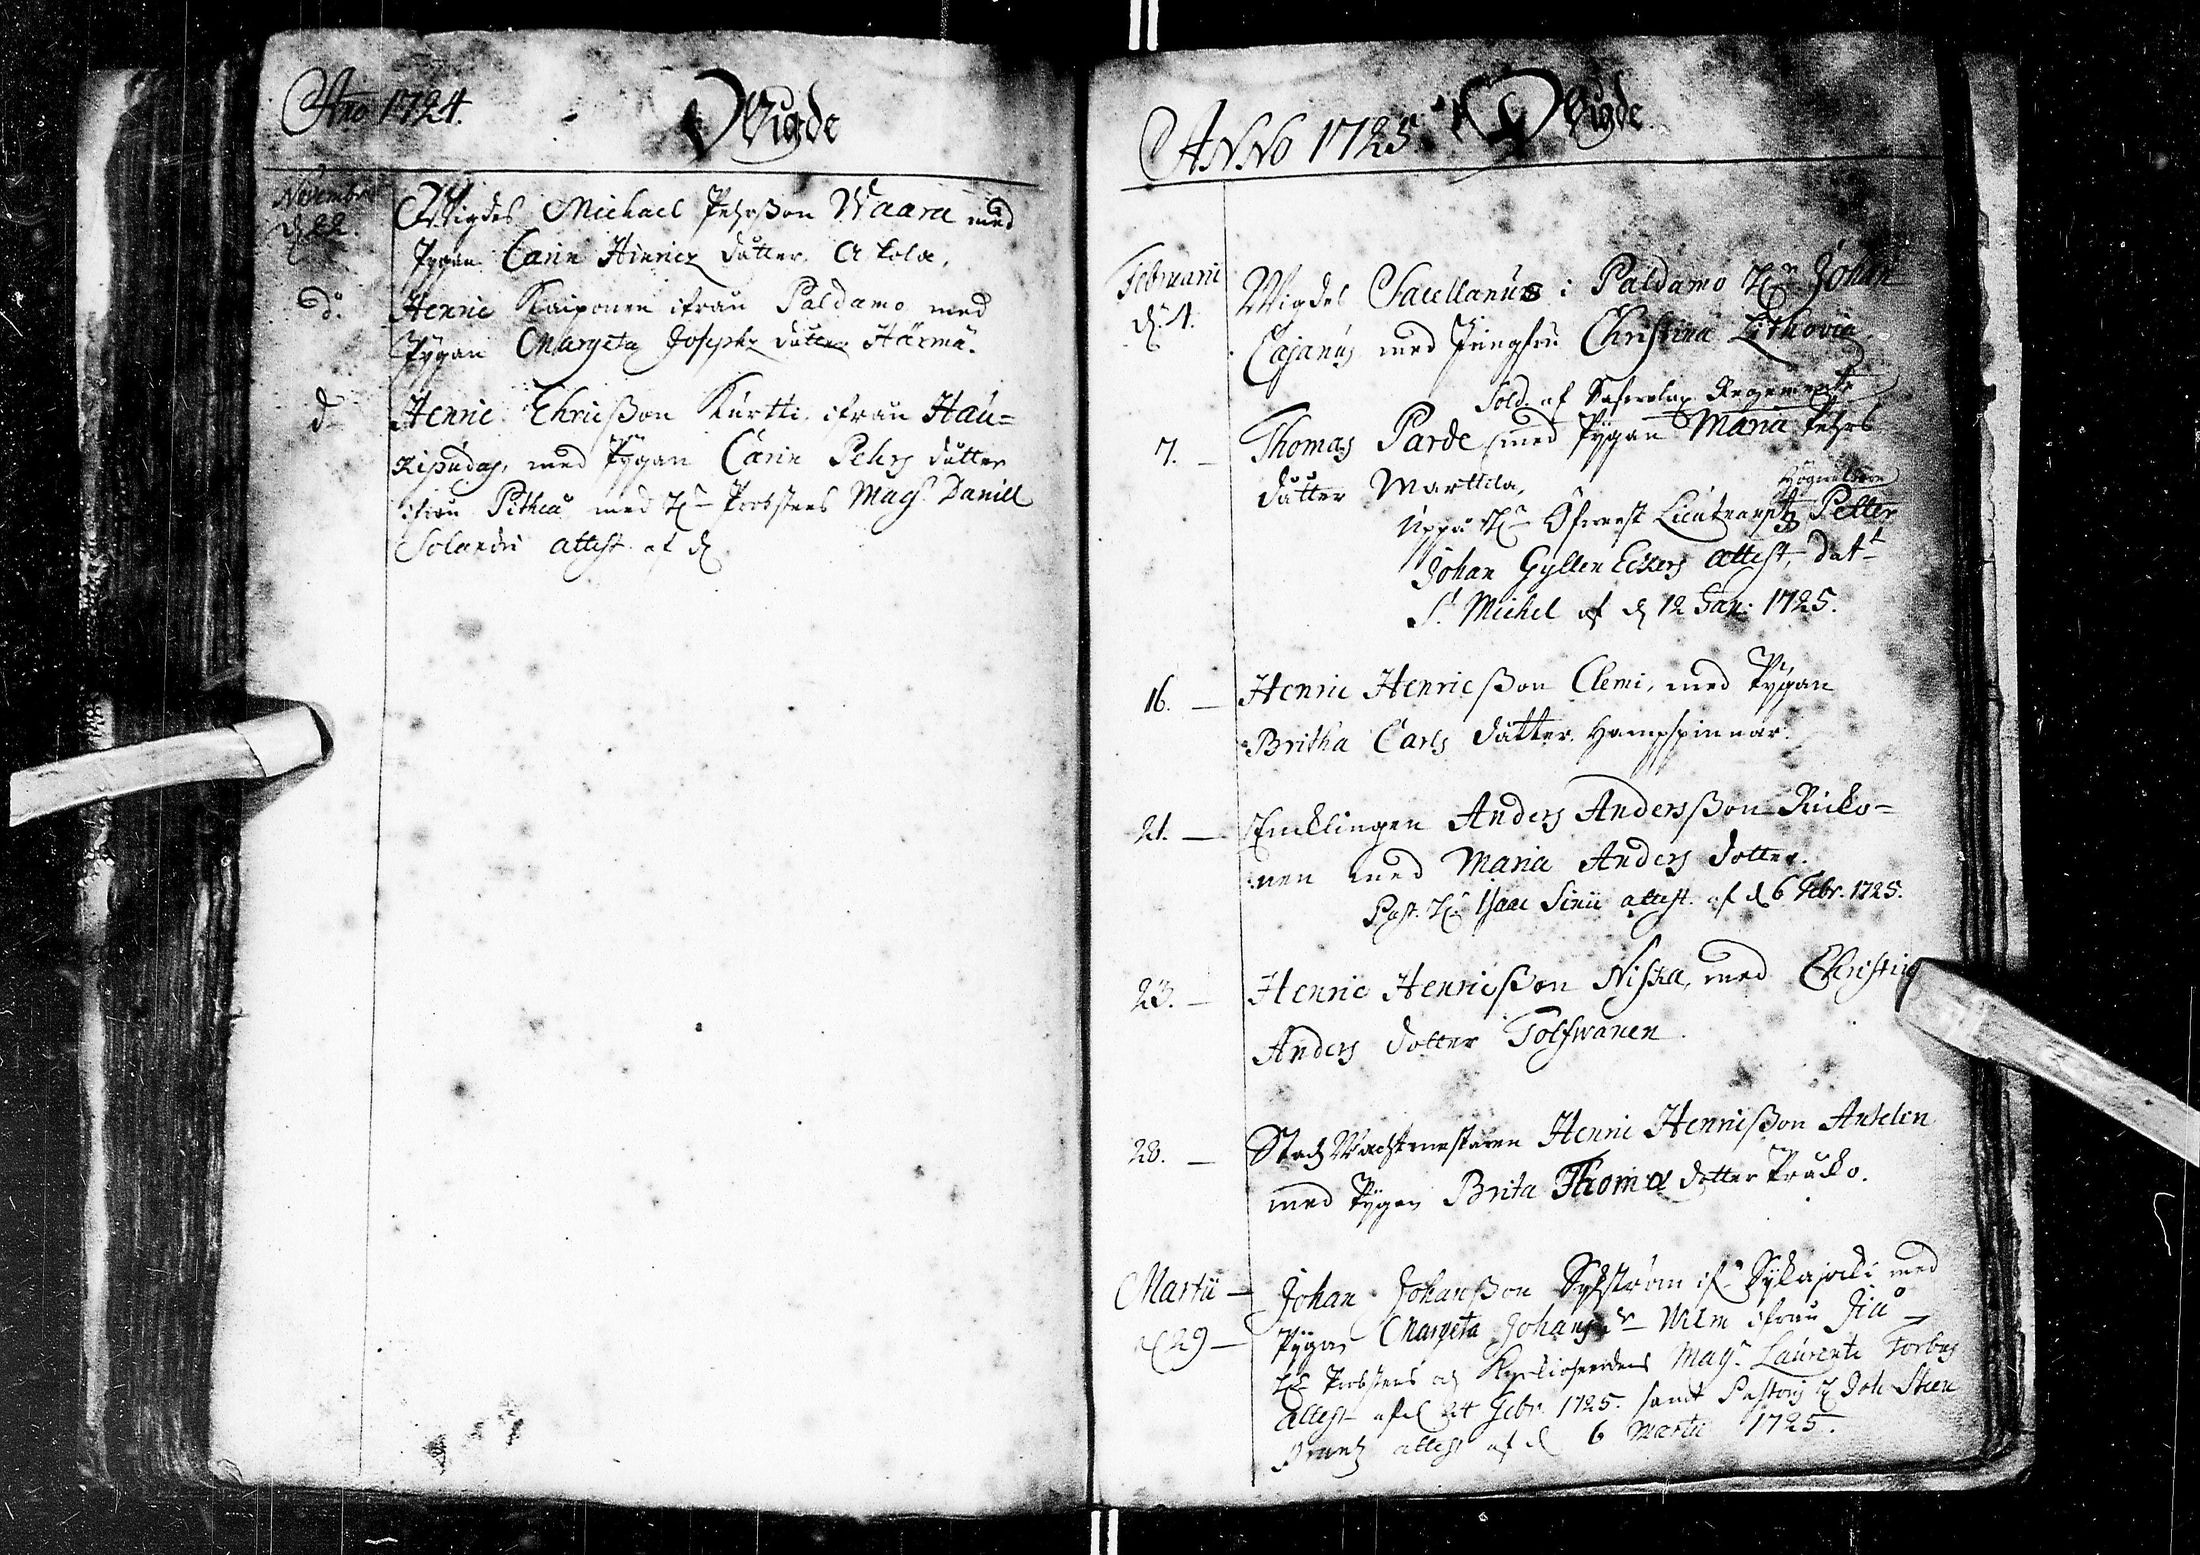 Ano 1724.
Wigde
Novembr
d 22. Wigdes Michael Pehrßon Waara med
Pygan Carin Hinricz dåtter Akola.
do Henric Kaiponen ifrån Paldamo med
Pÿgan Margeta Josephz dåtter Härmä.
do Henric Ehricßon Kurtti ifrån Hau=
kipudas, med Pÿgan Carin Pehrs dåtter
ifrån Pitheå med H Probstens Magr Daniel
Solandri attest af d
ANNO 1725
Wigde.
Februarii
d. 4. Wigdes Sacellanus i Paldamo Hr Johan
Cajanus med Jungfru Christina Lithovia
Sold. af Regemente
7. – Thomas Parde med Pÿgan Maria Pehrs
dåtter Marttila,
Högwälborne
Uppå Hr Öfwerst Lieutnantz Petter
Johan Gyllen Eckers attest, dat
St Michel af d 12 Jan: 1725.
16. – Henric Henricßon Clemi, med Pÿgan
Britha Carls dåtter Hampspinnar.
21. – Enklingen Anders Andersßon Ricko=
nen med Maria Anders dotter.
Past. Hr Isaac attest. af d 6 Febr. 1725.
23. – Henric Henricßon Niska, med Christin
Anders dotter Tolfwanen.
28. – Stadz Wachtmestaren Henric Henricßon Antelin
med Pÿgan Brita Thomæ dotter Pråcko.
Martii – Johan Johanßon Sykström ifr Sÿkajocki med
d 29 – Pÿgan Margeta Johans dr Wilm ifrån Jiå
Hr Probstens och Kyrckioherdens Magr Laurenti Forbus
attest af d 24 Febr. 1725. samt Pastoris H Joh Steen
attest af d 6 Martii 1725.